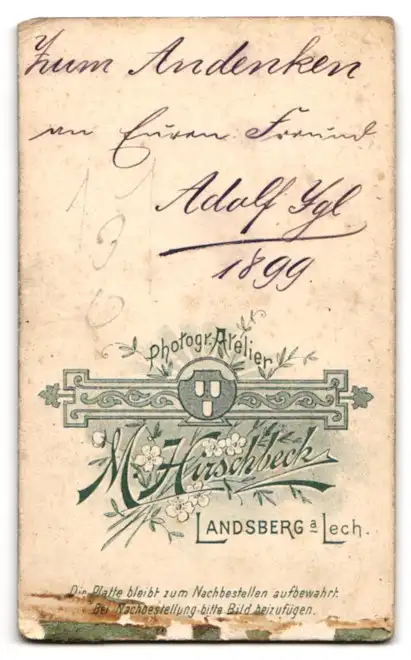 Zum Andenken
an Euren Freund
Adolf Ygl
1899
131
6
Photogr. Atelier
M. Hirschbeck
LANDSBERG a Lech.
Die Platte bleibt zum Nachbestellen aufbewahrt.
Bei Nachbestellung bitte Bild beizufügen.